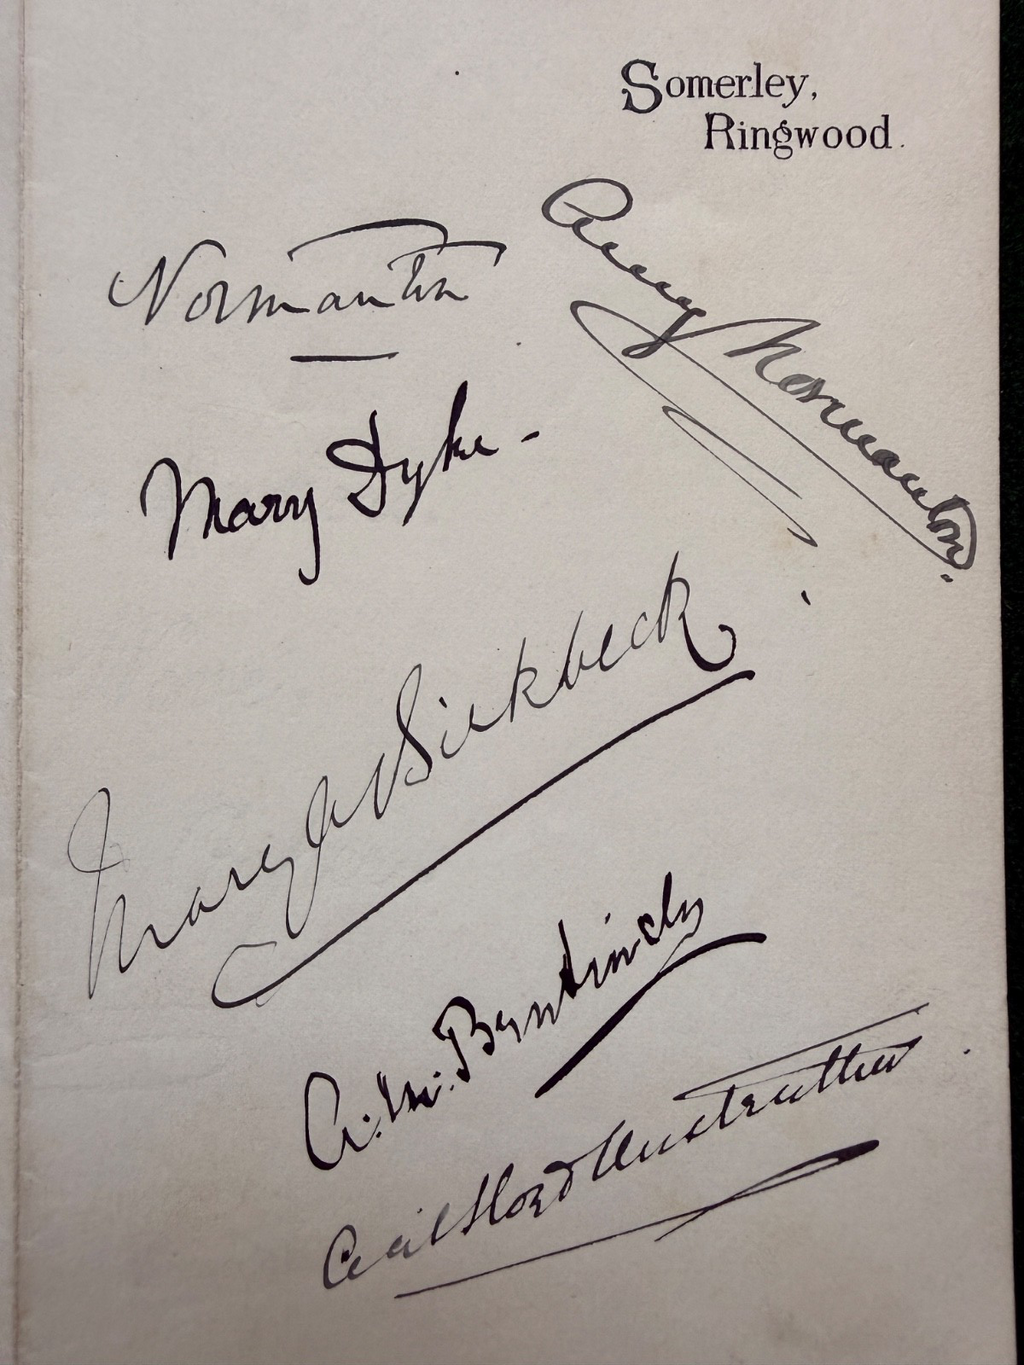 Somerley,
Ringwood.
Normanton
Amy Normanton.
Mary Dyke -
Mary A Birkbeck
A. M. Bentinck
Cecil Lloyd Anstruther